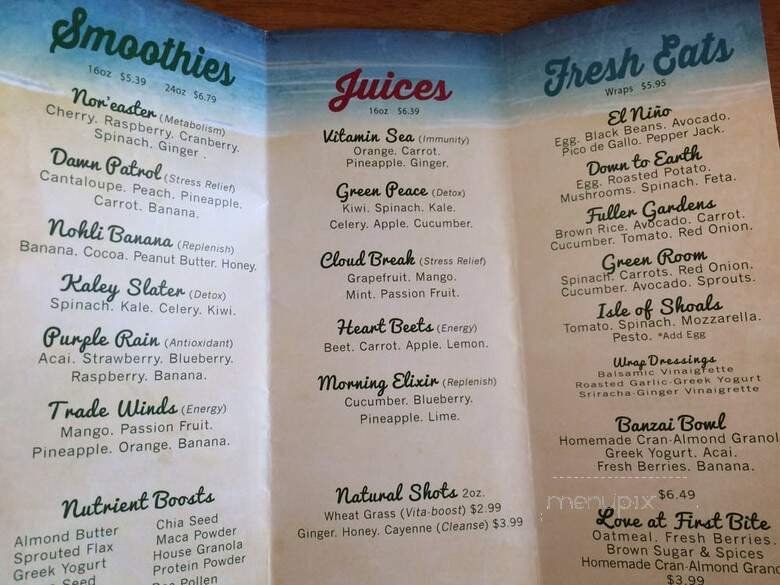 Smoothies
16oz $5.39 24oz $6.79
Nor'easter (Metabolism)
Cherry. Raspberry. Cranberry.
Spinach. Ginger .
Dawn Patrol (Stress Relief)
Cantaloupe. Peach. Pineapple.
Carrot. Banana.
Nohli Banana (Replenish)
Banana. Cocoa. Peanut Butter. Honey.
Kaley Slater (Detox)
Spinach. Kale. Celery. Kiwi.
Purple Rain (Antioxidant)
Acai. Strawberry. Blueberry.
Raspberry. Banana.
Trade Winds (Energy)
Mango. Passion Fruit.
Pineapple. Orange. Banana.
Nutrient Boosts
Almond Butter
Sprouted Flax
Greek Yogurt
Seed
Chia Seed
Maca Powder
House Granola
Protein Powder
Bee Pollen
Juices
16oz $6.39
Vitamin Sea (Immunity)
Orange. Carrot.
Pineapple. Ginger.
Green Peace (Detox)
Kiwi. Spinach. Kale.
Celery. Apple. Cucumber.
Cloud Break (Stress Relief)
Grapefruit. Mango.
Mint. Passion Fruit.
Heart Beets (Energy)
Beet. Carrot. Apple. Lemon.
Morning Elixir (Replenish)
Cucumber. Blueberry.
Pineapple. Lime.
Natural Shots 2oz.
Wheat Grass (Vita-boost) $2.99
Ginger. Honey. Cayenne (Cleanse) $3.99
Fresh Eats
Wraps $5.95
El Niño
Egg. Black Beans. Avocado.
Pico de Gallo. Pepper Jack.
Down to Earth
Egg. Roasted Potato.
Mushrooms. Spinach. Feta.
Fuller Gardens
Brown Rice. Avocado. Carrot.
Cucumber. Tomato. Red Onion.
Green Room
Spinach. Carrots. Red Onion.
Cucumber. Avocado. Sprouts.
Isle of Shoals
Tomato. Spinach. Mozzarella.
Pesto. *Add Egg
Wrap Dressings
Balsamic Vinaigrette
Roasted Garlic-Greek Yogurt
Sriracha-Ginger Vinaigrette
Banzai Bowl
Homemade Cran-Almond Granol
Greek Yogurt. Acai.
Fresh Berries. Banana.
$6.49
menupix
Love at First Bite
Oatmeal. Fresh Berries.
Brown Sugar & Spices
Homemade Cran-Almond Grano
$3.99